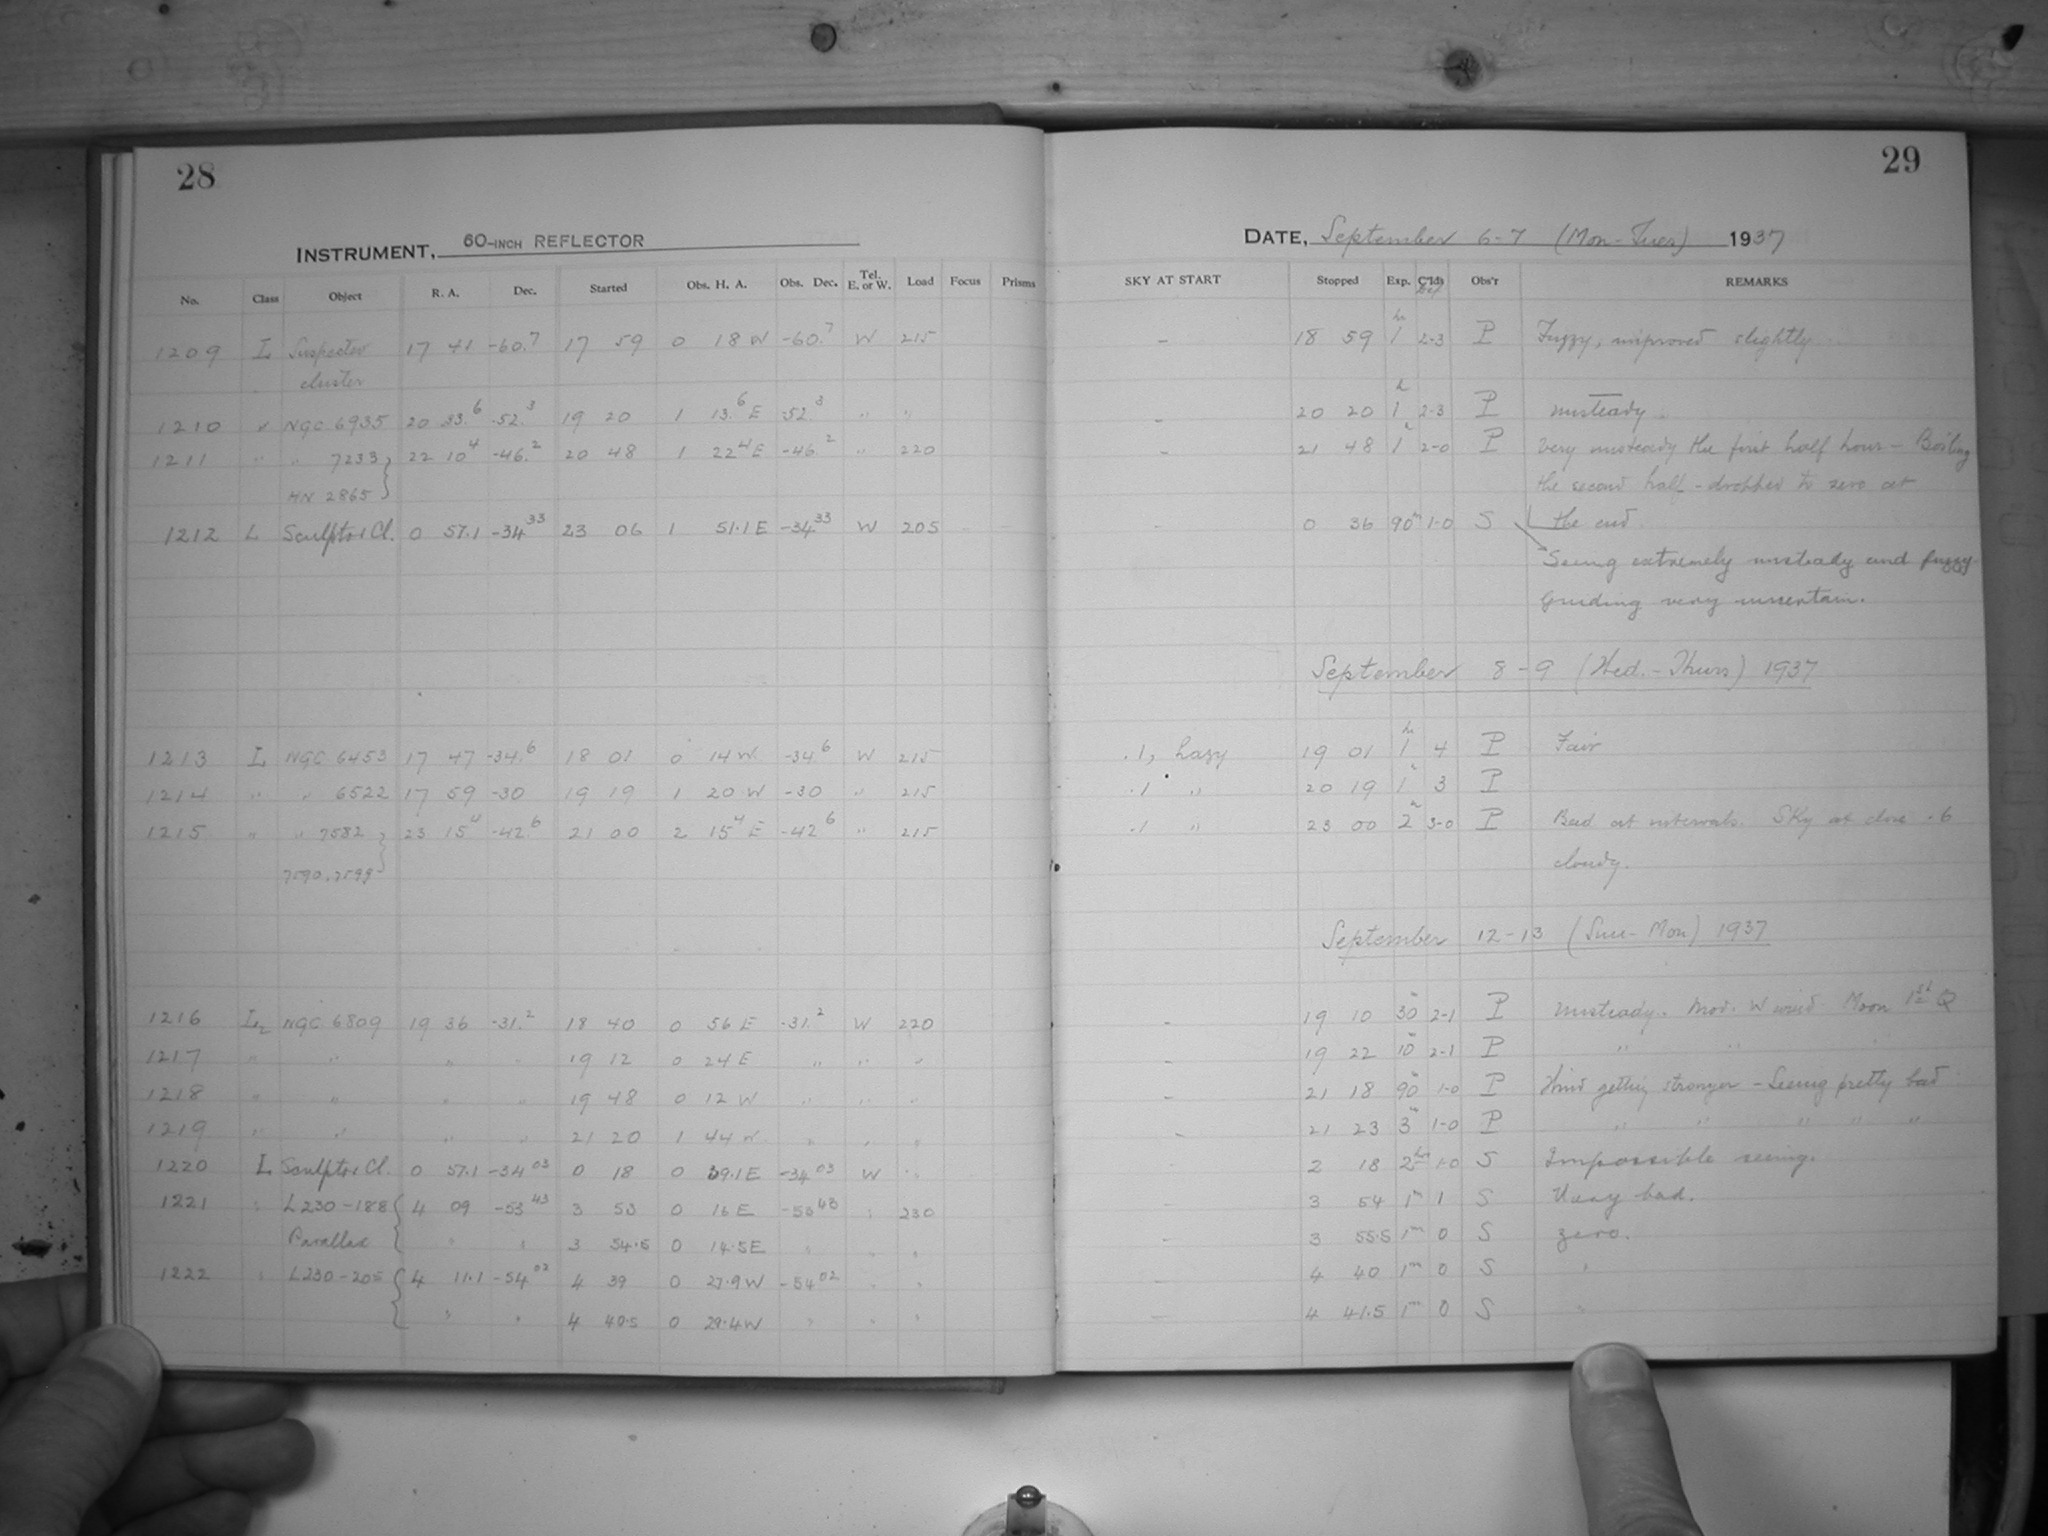 28
INSTRUMENT, 60-INCH REFLECTOR
No. Class Object R. A. Dec. Started Obs. H. A. Obs. Dec. Tel. E. or W. Load Focus Prisms
1209 L Suspected 17 41 -60.7 17 59 0 18 W -60.7 W 215
cluster
1210 " NGC 6935 20 33.6 -52.3 19 20 1 13.6 E 52.3 " "
1211 " " 7233 } 22 10.4 -46.2 20 48 1 22.4 E -46.2 " 220
HN 2865 }
1212 L Sculptor Cl. 0 57.1 -34 33 23 06 1 51.1 E -34 33 W 205
1213 L NGC 6453 17 47 -34.6 18 01 0 14 W -34.6 W 215
1214 " " 6522 17 59 -30 19 19 1 20 W -30 " 215
1215 " " 7582 } 23 15.4 -42.6 21 00 2 15.4 E -42.6 " 215
7590, 7599 }
1216 L2 NGC 6809 19 36 -31.2 18 40 0 56 E -31.2 W 220
1217 " " " " 19 12 0 24 E " " "
1218 " " " " 19 48 0 12 W " " "
1219 " " " " 21 20 1 44 W " " "
1220 L Sculptor Cl. 0 57.1 -34 03 0 18 0 39.1 E -34 03 W "
1221 " L230-188 { 4 09 -53 43 3 53 0 16 E -53 43 " 230
Parallax { " " 3 54.5 0 14.5 E " " "
1222 " L230-205 { 4 11.1 -54 02 4 39 0 27.9 W -54 02 " "
{ " " 4 40.5 0 29.4 W " " "
29
DATE, September 6-7 (Mon-Tues) 1937
SKY AT START Stopped Exp. C'lds Obs'r REMARKS
- 18 59 1h 2-3 P Fuzzy, improved slightly
- 20 20 1h 2-3 P unsteady.
- 21 48 1h 2-0 P very unsteady the first half hour - Boiling
the second half - dropped to zero at
- 0 36 90m 1-0 S the end.
Seeing extremely unsteady and fuzzy
Guiding very uncertain.
September 8-9 (Wed.-Thurs) 1937
.1, hazy 19 01 1h 4 P Fair
.1 " 20 19 1h 3 P
.1 " 23 00 2h 3-0 P Bad at intervals. Sky at close .6
cloudy.
September 12-13 (Sun-Mon) 1937
- 19 10 30m 2-1 P unsteady. Mod. W wind. Moon 1st Q
- 19 22 10m 2-1 P " "
- 21 18 90m 1-0 P Wind getting stronger - Seeing pretty bad
- 21 23 3m 1-0 P " " " " "
- 2 18 2hrs 1-0 S Impossible seeing.
- 3 54 1m 1 S Very bad.
- 3 55.5 1m 0 S zero.
- 4 40 1m 0 S "
- 4 41.5 1m 0 S "